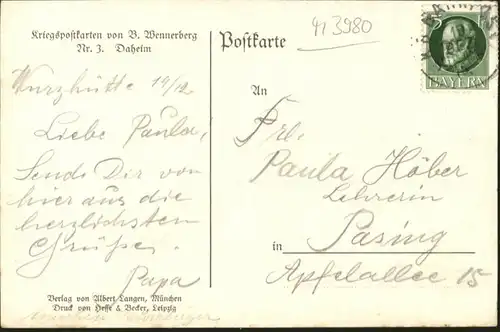 Kriegspostkarten von B. Wennerberg
Nr. 3. Daheim
Wurzhütte 19/12.
Liebe Paula!
Sende Dir von
hier aus die
herzlichsten
Grüße.
Papa
Verlag von Albert Langen, München
Druck von Hesse & Becker, Leipzig
Postkarte
413980
5
BAYERN
An
Frl.
Paula Höber
Lehrerin
in Pasing
Apfelallee 15